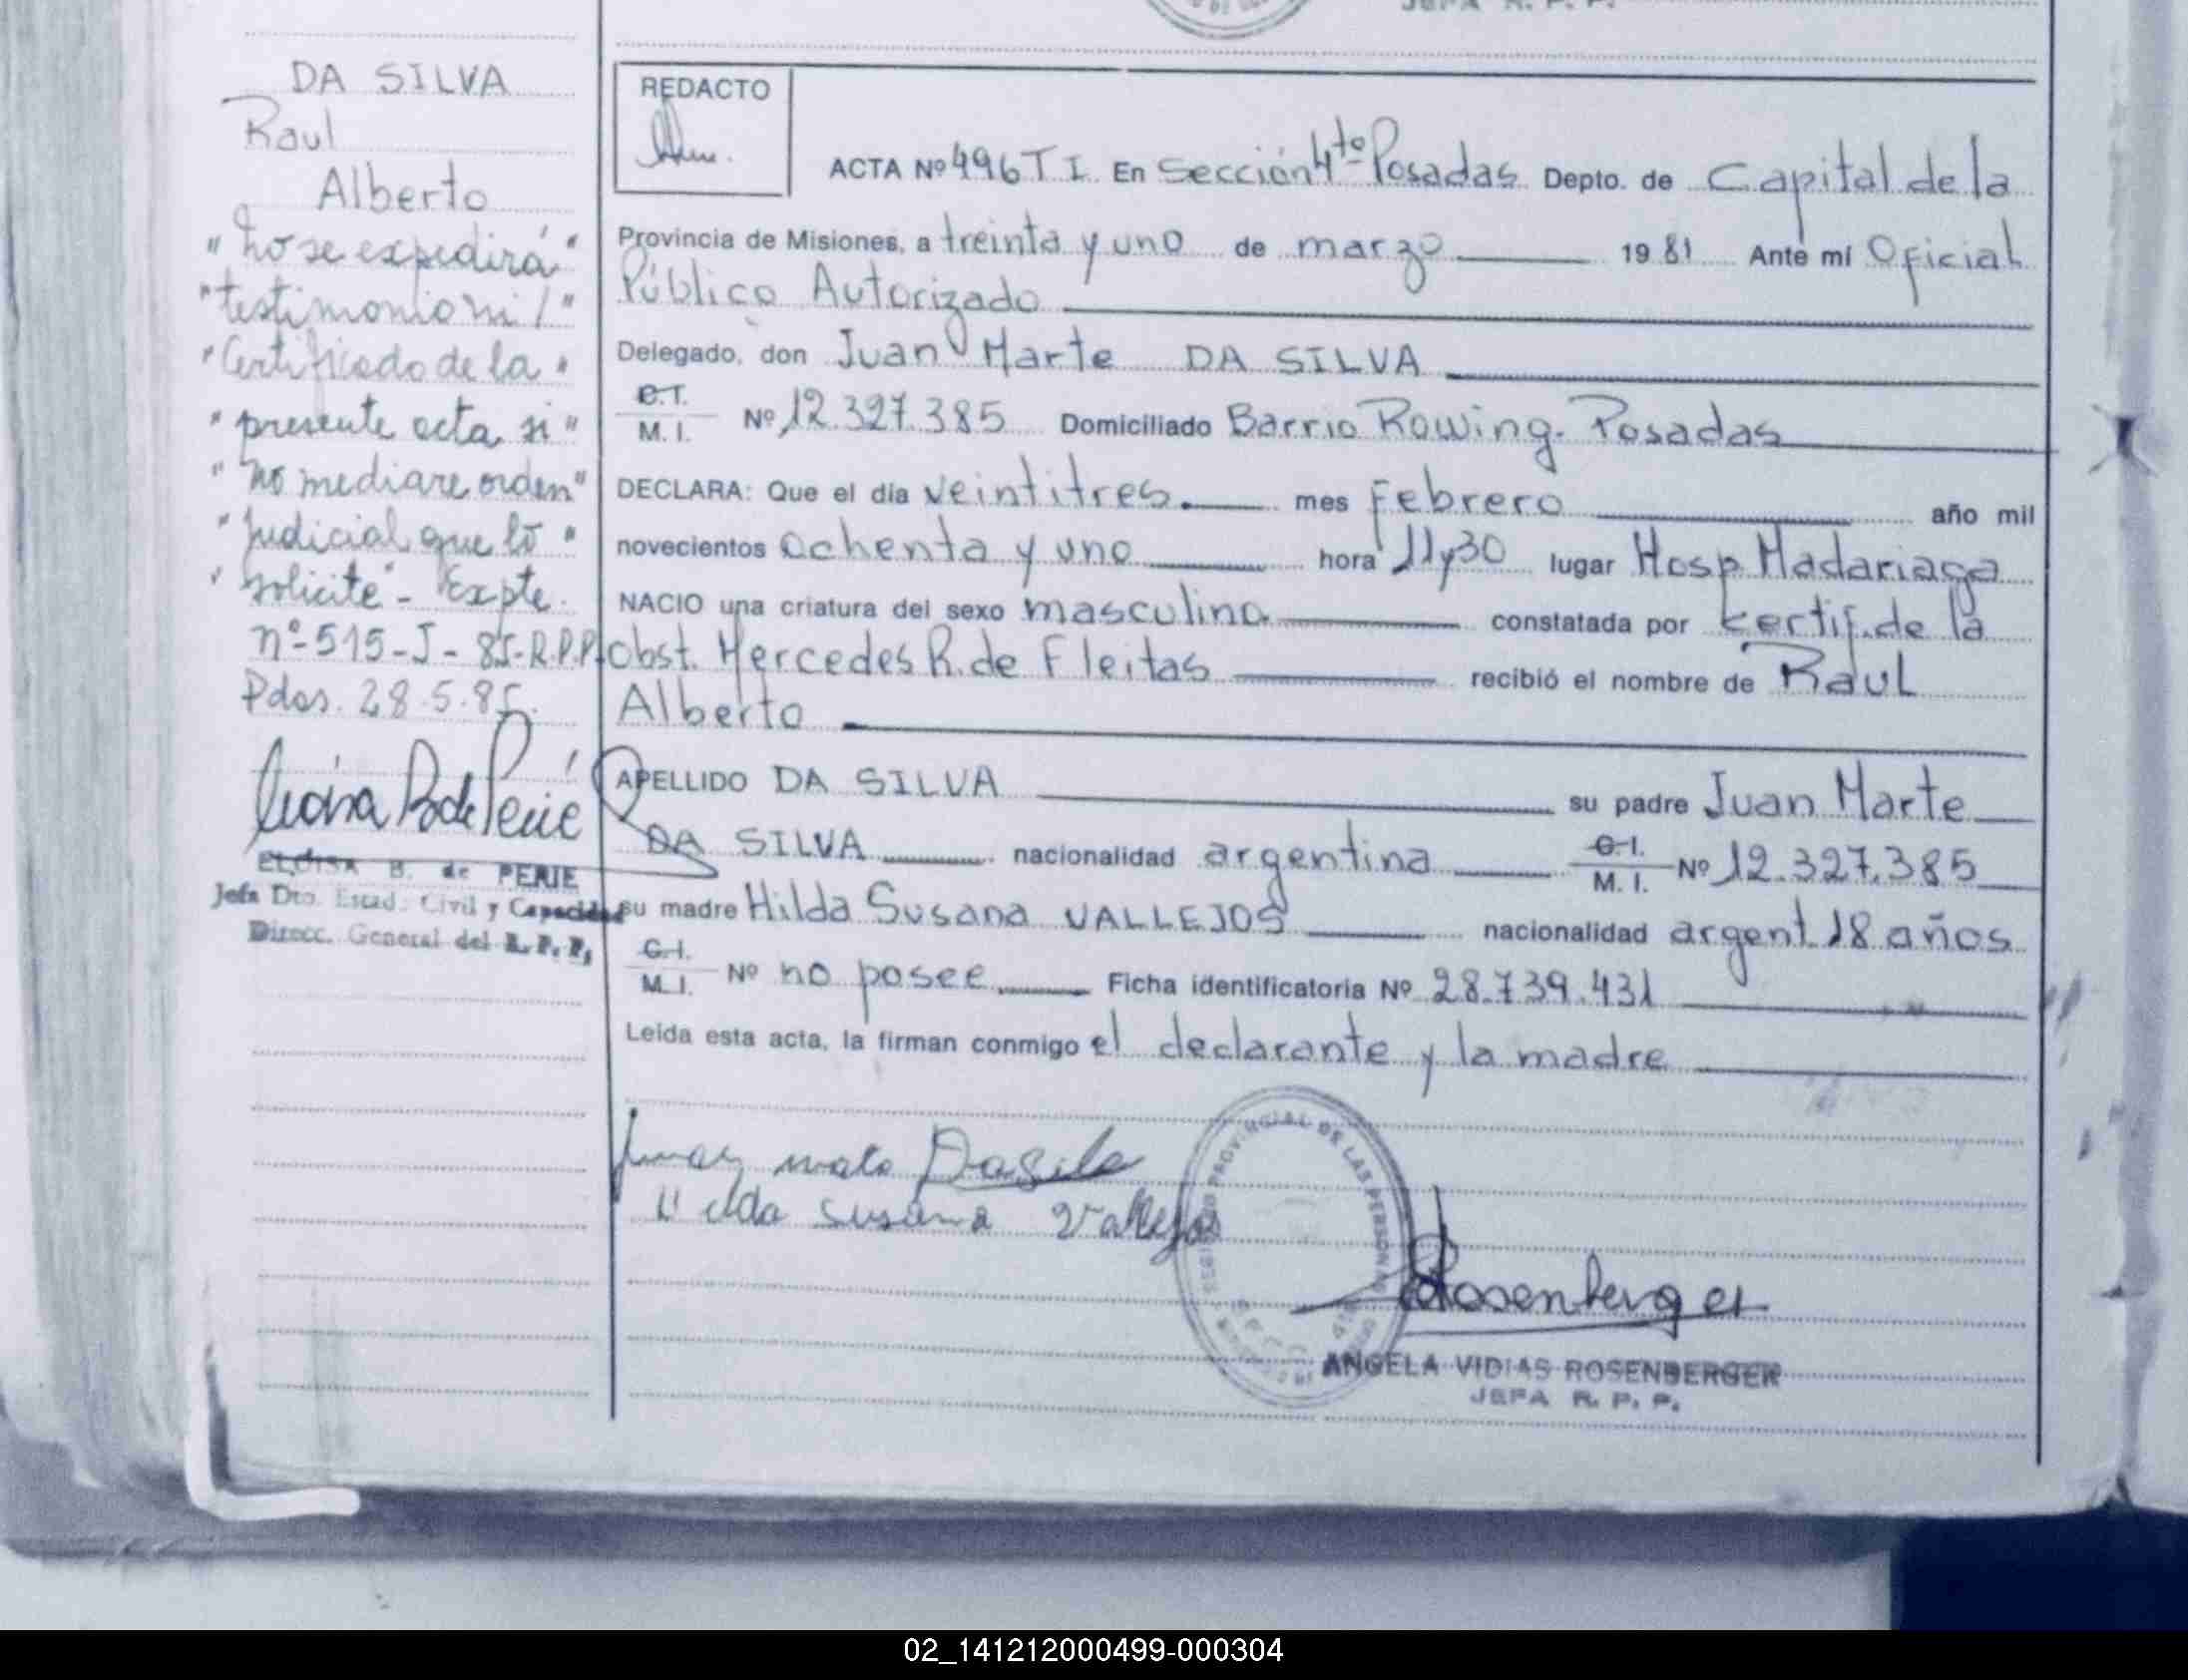 JEFA R. P. P.
DA SILVA
Raul
Alberto
"No se expedirá"
"testimonio ni/"
"Certificado de la"
"presente acta si"
"no mediare orden"
"Judicial que lo"
"solicite"- Expte.
nº-515-J-85-R.P.P.
Pdas. 28.5.85.
ELOISA B. de PERIE
Jefa Dto. Estad. Civil y Capacidad
Direcc. General del R. P. P.
REDACTO
ACTA Nº 496 T I. En Sección 4ta Posadas Depto. de Capital de la
Provincia de Misiones, a treinta y uno de marzo 1981 Ante mí Oficial
Público Autorizado
Delegado, don Juan Marte DA SILVA
C.I. M. I. Nº 12.327.385 Domiciliado Barrio Rowing. Posadas
DECLARA: Que el día veintitres. mes Febrero año mil
novecientos ochenta y uno hora 11y30 lugar Hosp. Madariaga
NACIO una criatura del sexo masculino constatada por certif. de la
Obst. Mercedes R. de Fleitas recibió el nombre de Raul
Alberto
APELLIDO DA SILVA su padre Juan Marte
DA SILVA nacionalidad argentina C.I. M. I. Nº 12.327.385
su madre Hilda Susana VALLEJOS nacionalidad argent. 18 años
C.I. M. I. Nº no posee Ficha identificatoria Nº 28.739.431
Leida esta acta, la firman conmigo el declarante y la madre
Dasila
ilda susana Vallejos
REGISTRO PROVINCIAL DE LAS PERSONAS
Rosenberger
ANGELA VIDIAS ROSENBERGER
JEFA R. P. P.
02_141212000499-000304